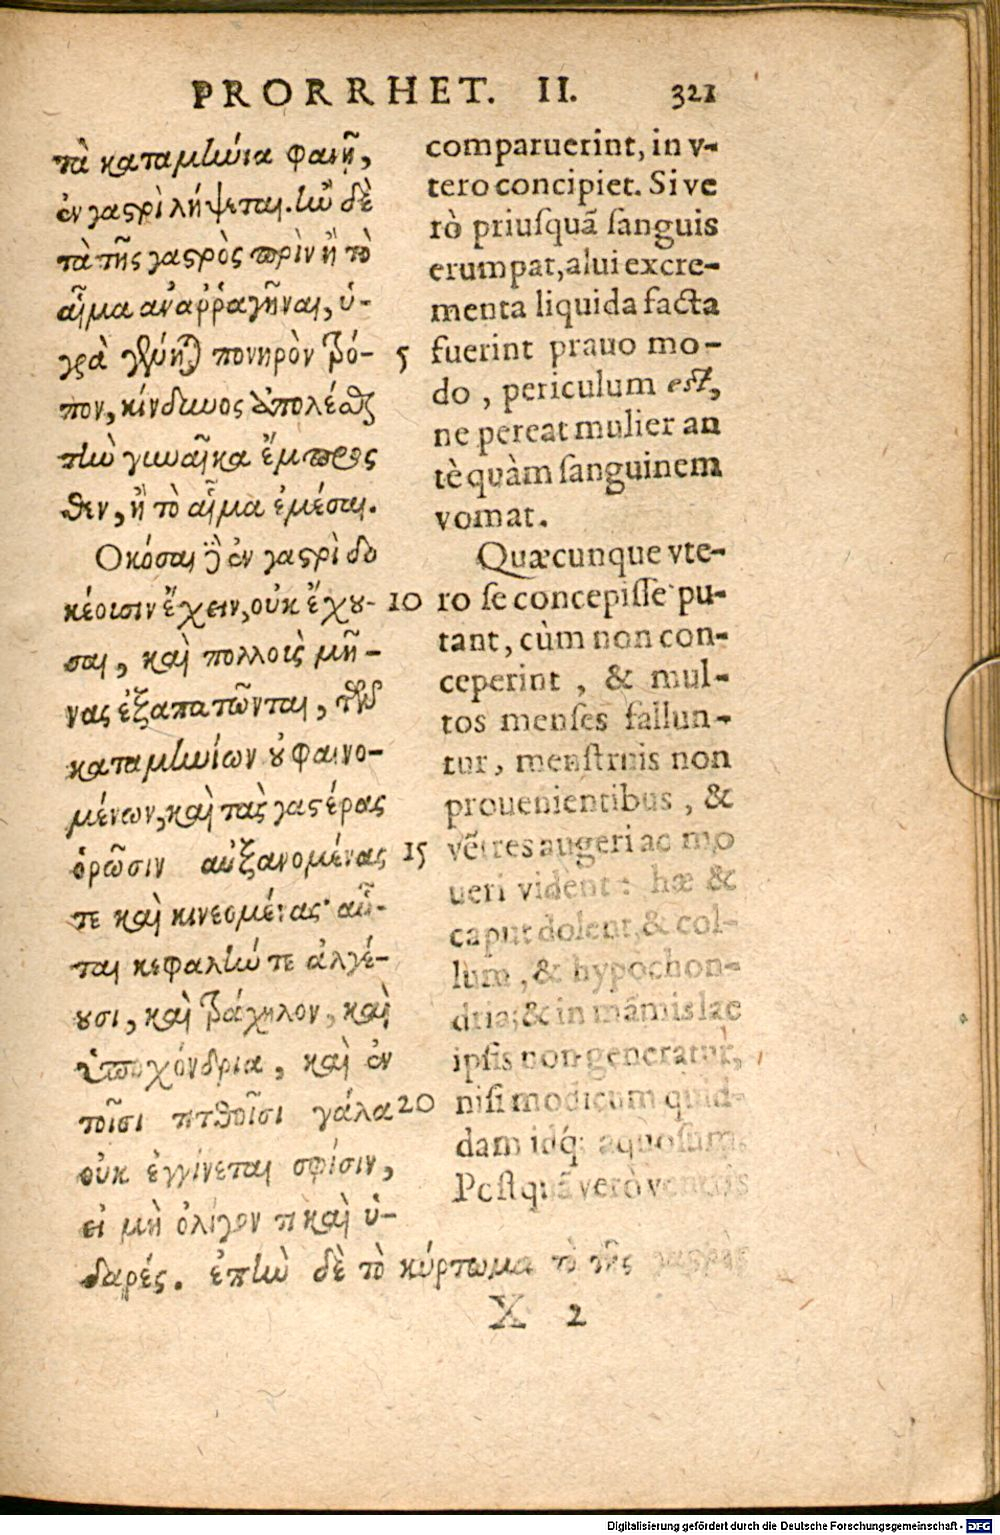 PRORRHET. II. 321
τὰ καταμήνια φανῇ,
ἐν γαστρὶ λήψεται. ἢν δὲ
τὰ τῆς γαστρὸς πρὶν ἢ τὸ
αἷμα ἀναῤῥαγῆναι, ὑ-
γρὰ γένηται πονηρὸν τρό-
πον, κίνδυνος ἀπολέσθαι
τὴν γυναῖκα ἔμπροσ
θεν, ἢ τὸ αἷμα ἐμέσαι.
Οκόσαι δὲ ἐν γαστρὶ δο
κέουσιν ἔχειν, οὐκ ἔχου-
σαι, καὶ πολλοὺς μῆ-
νας ἐξαπατῶνται, τῶν
καταμηνίων οὐ φαινο-
μένων, καὶ τὰς γαστέρας
ὁρῶσιν αὐξανομένας
τε καὶ κινεομένας· αὗ-
ται κεφαλήν τε ἀλγέ-
ουσι, καὶ τράχηλον, καὶ
ὑποχόνδρια, καὶ ἐν
τοῖσι τιτθοῖσι γάλα
οὐκ ἐγγίνεται σφίσιν,
εἰ μὴ ὀλίγον τι καὶ ὑ-
δαρές. ἐπὴν δὲ τὸ κύρτωμα τὸ τῆς γαστρὸς
5
10
15
20
comparuerint, in v-
tero concipiet. Si ve
rò priuſquã ſanguis
erumpat, alui excre-
menta liquida facta
fuerint prauo mo-
do, periculum est,
ne pereat mulier an
tè quàm ſanguinem
vomat.
Quæcunque vte-
ro ſe concepiſſe pu-
tant, cùm non con-
ceperint, & mul-
tos menſes fallun-
tur, menſtruis non
prouenientibus, &
vẽtres augeri ac mo
ueri vident: hæ &
caput dolent, & col-
lum, & hypochon-
dria; & in mãmis lac
ipſis non generatur,
niſi modicum quid-
dam idq́; aquoſum.
Poſtquã verò ventris
X 2
Digitalisierung gefördert durch die Deutsche Forschungsgemeinschaft - DFG